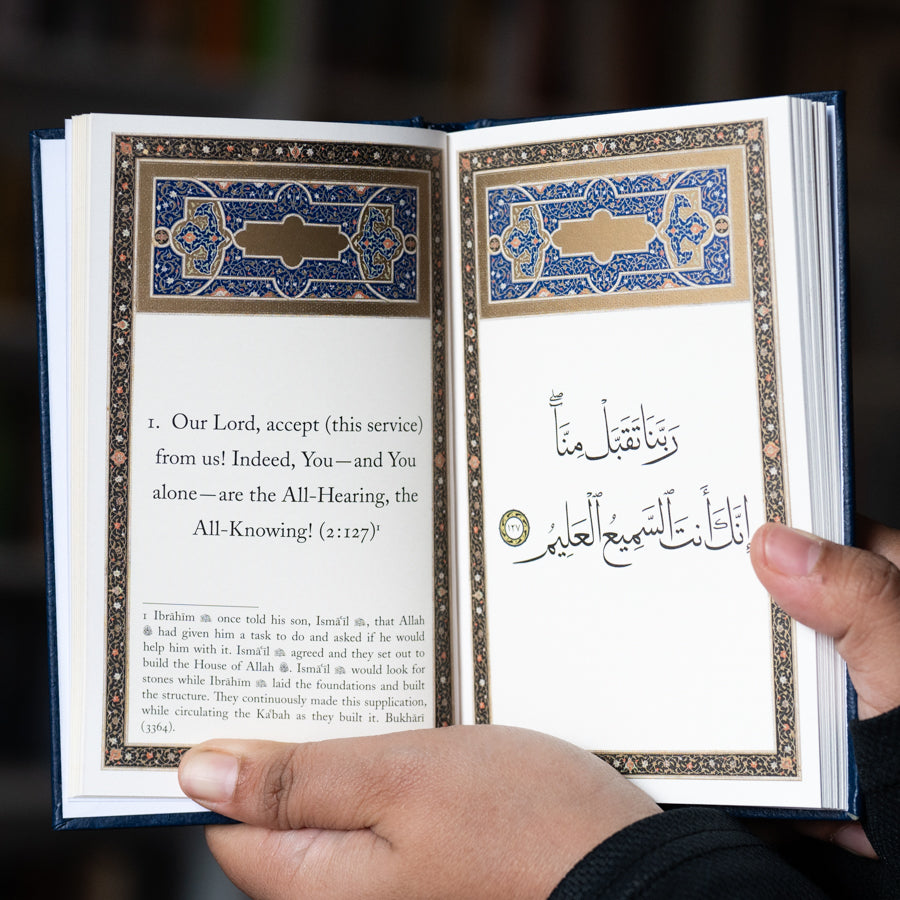 1. Our Lord, accept (this service)
from us! Indeed, You—and You
alone—are the All-Hearing, the
All-Knowing! (2:127)¹
1 Ibrāhīm ﷺ once told his son, Ismāʿīl ﷺ, that Allah
ﷻ had given him a task to do and asked if he would
help him with it. Ismāʿīl ﷺ agreed and they set out to
build the House of Allah ﷻ. Ismāʿīl ﷺ would look for
stones while Ibrāhīm ﷺ laid the foundations and built
the structure. They continuously made this supplication,
while circulating the Kaʿbah as they built it. Bukhārī
(3364).
رَبَّنَا تَقَبَّلْ مِنَّآۖ
إِنَّكَ أَنتَ ٱلسَّمِيعُ ٱلْعَلِيمُ ١٢٧